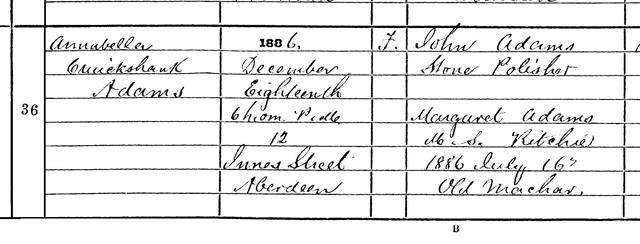 36
Annabella
Cruickshank
Adams
1886.
December
Eighteenth
12
Innes Street
Aberdeen
F.
John Adams
Stone Polisher
Margaret Adams
M. S. Ritchie
1886 July 16
Old Machar.
B